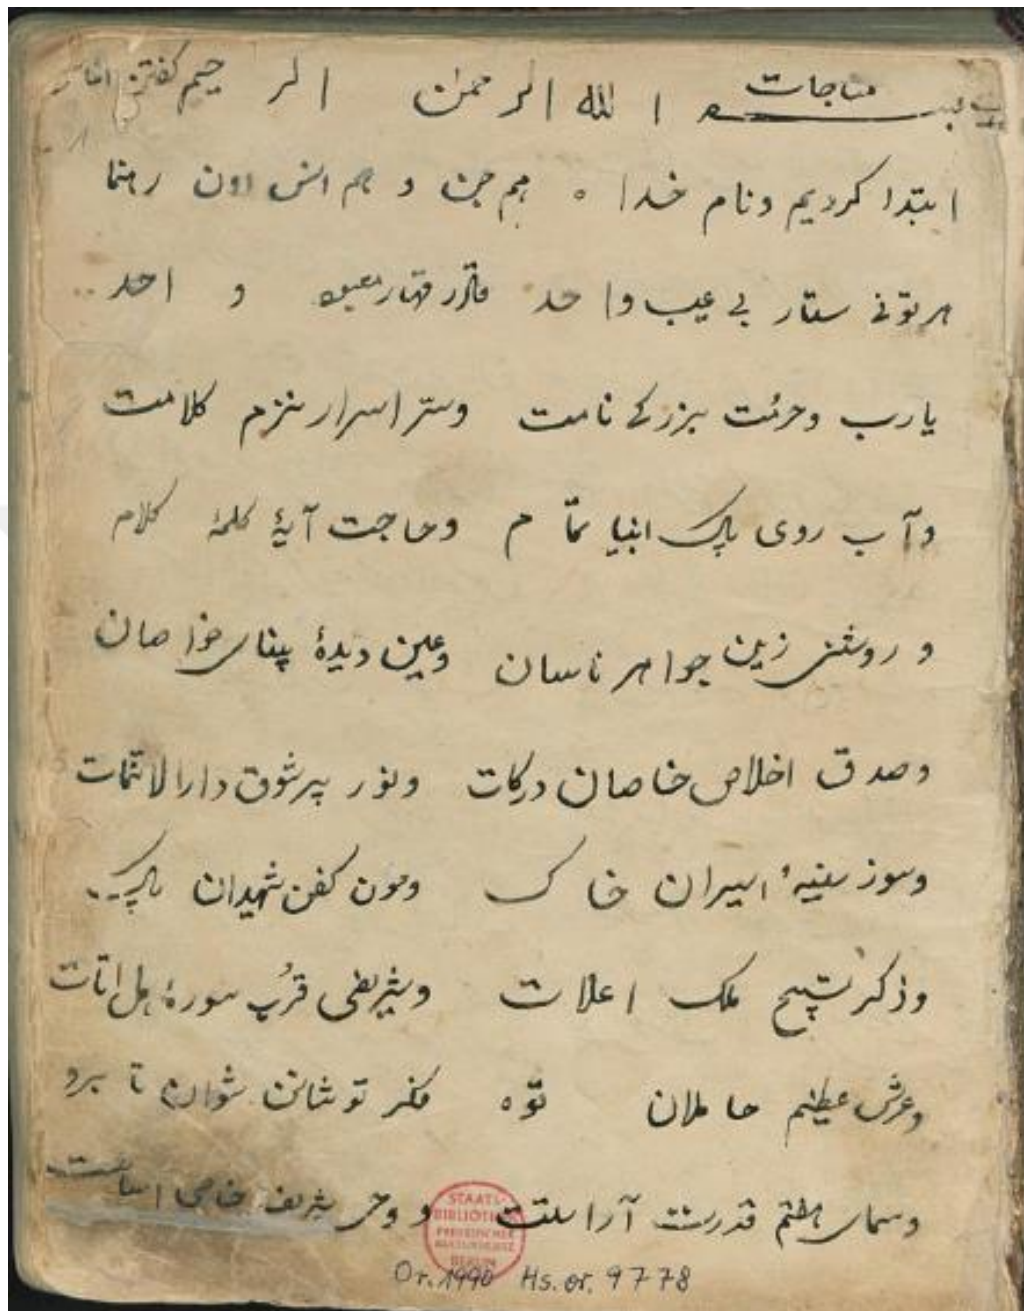 مناجات
بسم الله الرحمن الرحیم
ابتدا کردیم ونام خدا ه هم جن و هم انس اون رهنما
هر تونی ستار بی عیب واحد قادر قهار و احد
یارب وحرمت بزرگے نامت وستر اسرار کلامت
وآب روی پاک انبیا تمام وحاجت آیهٔ کلمهٔ کلام
و روشنی زین جواهر ناسان وعین دیدهٔ پینای خواصان
وصدق اخلاص خاصان درکات ونور پرشوق دارالاتمات
وسوز سینهٔ اسیران خاک وهون کفن شهیدان پاک
وذکر تسبیح ملک اعلات وشریفی قرب سورهٔ هل اتات
وعرش عظیم حاملان توه فکر تو شانن شوان تا برو
وسمای هفتم قدرتت آراستت و وحی شریف خاص
STAATS-BIBLIOTHEK PREUSSISCHER KULTURBESITZ BERLIN
Or. 1990 Hs. or. 9778